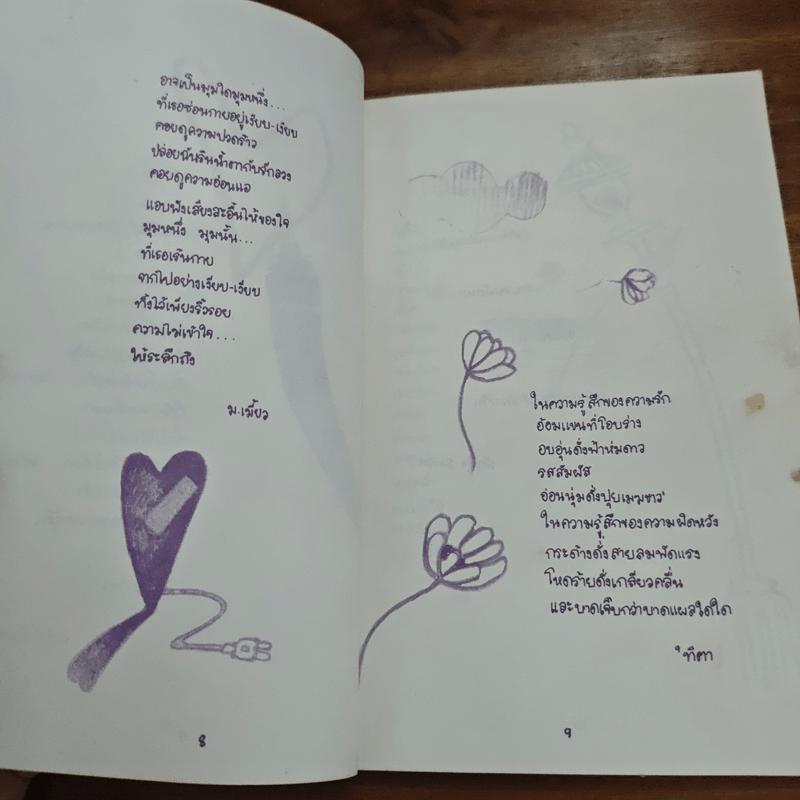 อาจเป็นมุมใดมุมหนึ่ง...
ที่เธอซ่อนกายอยู่เงียบ-เงียบ
คอยดูความปวดร้าว
ปล่อยฉันรินน้ำตากับรักลวง
คอยดูความอ่อนแอ
แอบฟังเสียงสะอื้นไห้ของใจ
มุมหนึ่ง มุมนั้น...
ที่เธอเร้นกาย
จากไปอย่างเงียบ-เงียบ
ทิ้งไว้เพียงริ้วรอย
ความไม่เข้าใจ...
ให้ระลึกถึง
ม.เมี้ยว
8
ในความรู้สึกของความรัก
อ้อมแขนที่โอบร่าง
อบอุ่นดั่งฟ้าห่มดาว
รสสัมผัส
อ่อนนุ่มดั่งปุยเมฆขาว
ในความรู้สึกของความผิดหวัง
กระด้างดั่งสายลมพัดแรง
โหดร้ายดั่งเกลียวคลื่น
และบาดเจ็บกว่าบาดแผลใดใด
ทิตา
9